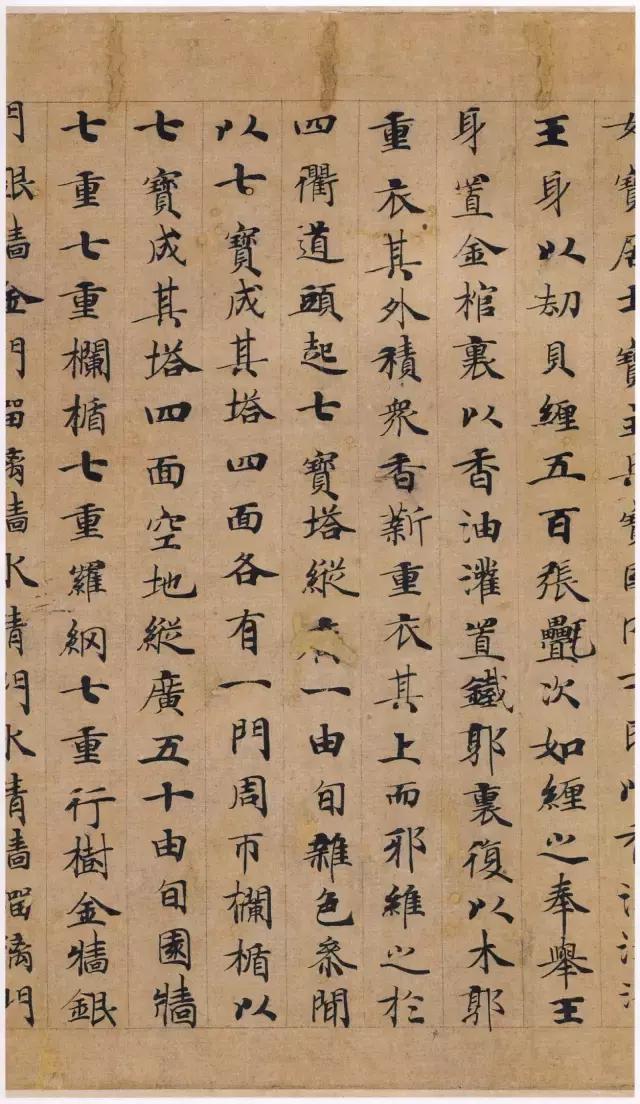 女寶居士寶主兵寶國内士民以
王身以劫貝纏五百張氎次如纏之奉舉王
身置金棺裏以香油灌置鐵郭裏復以木郭
重衣其外積衆香薪重衣其上而邪維之於
四衢道頭起七寶塔縱一由旬雜色參間
以七寶成其塔四面各有一門周帀欄楯以
七寶成其塔四面空地縱廣五十由旬園牆
七重七重欄楯七重羅網七重行樹金牆銀
門銀牆金門琉璃牆水精門水精牆琉璃門